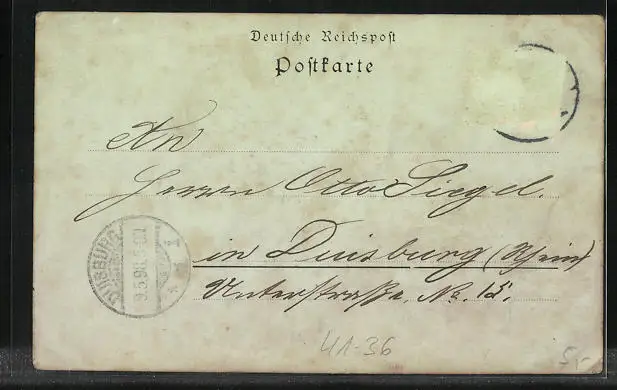 Deutsche Reichspost
Postkarte
An
Herrn Otto Siegel.
in Duisburg (Rhein)
Unterstraße, No. 15.
DUISBURG
9.5.98.
41-36
5,-